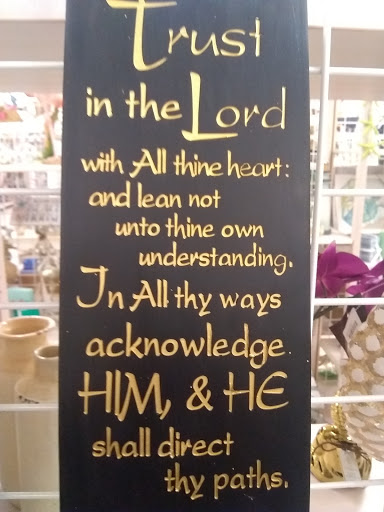 Trust
in the Lord
with All thine heart:
and lean not
unto thine own
understanding.
In All thy ways
acknowledge
HIM, & HE
shall direct
thy paths.